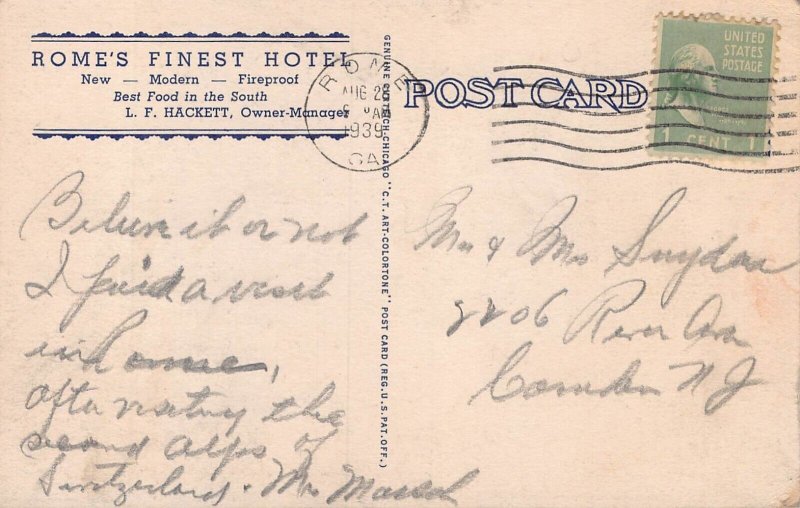 ROME'S FINEST HOTEL
New — Modern — Fireproof
Best Food in the South
L. F. HACKETT, Owner-Manager
ROME
AUG 25
AM
1939
GA
POST CARD
UNITED
STATES
POSTAGE
1 CENT 1
GENUINE CURTEICH-CHICAGO "C.T. ART-COLORTONE" POST CARD (REG. U.S. PAT. OFF.)
Believe it or not
I paid a visit
in Rome,
after visiting the
second Alps of
Switzerland. Mr
Mr & Mrs Snyder
2206 River Ave
Camden N J